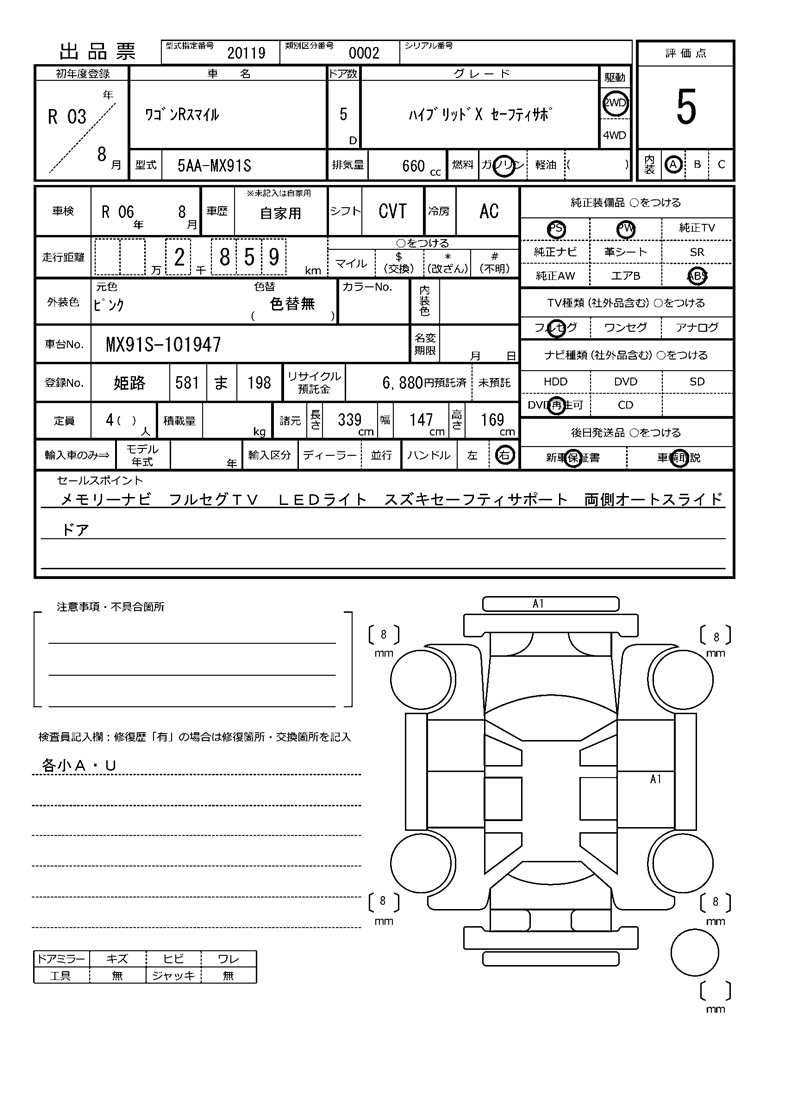 出品票 型式指定番号 20119 類別区分番号 0002 シリアル番号
評価点
5
内装 A B C
初年度登録 車名 ドア数 グレード 駆動
R 03 年 8 月 ﾜｺﾞﾝRｽﾏｲﾙ 5 D ﾊｲﾌﾞﾘｯﾄﾞX ｾｰﾌﾃｨｻﾎﾟ 2WD
4WD
型式 5AA-MX91S 排気量 660 cc 燃料 ガソリン 軽油 ( )
車検 R 06 年 8 月 車歴 ※未記入は自家用 自家用 シフト CVT 冷房 AC
走行距離 万 2 千 8 5 9 km ○をつける
マイル $ (交換) * (改ざん) # (不明)
外装色 元色 ﾋﾟﾝｸ 色替 ( 色替無 ) カラーNo. 内装色
車台No. MX91S-101947 名変期限 月 日
登録No. 姫路 581 ま 198 リサイクル預託金 6,880円預託済 未預託
定員 4( ) 人 積載量 kg 諸元 長さ 339 cm 幅 147 cm 高さ 169 cm
輸入車のみ⇒ モデル年式 年 輸入区分 ディーラー 並行 ハンドル 左 右
純正装備品 ○をつける
PS PW 純正TV
純正ナビ 革シート SR
純正AW エアB ABS
TV種類(社外品含む) ○をつける
フルセグ ワンセグ アナログ
ナビ種類(社外品含む) ○をつける
HDD DVD SD
DVD再生可 CD
後日発送品 ○をつける
新車保証書 車輌取説
セールスポイント
メモリーナビ フルセグTV LEDライト スズキセーフティサポート 両側オートスライド
ドア
注意事項・不具合箇所
検査員記入欄：修復歴「有」の場合は修復箇所・交換箇所を記入
各小A・U
ドアミラー キズ ヒビ ワレ
工具 無 ジャッキ 無
A1
8 mm
8 mm
A1
8 mm
8 mm
mm